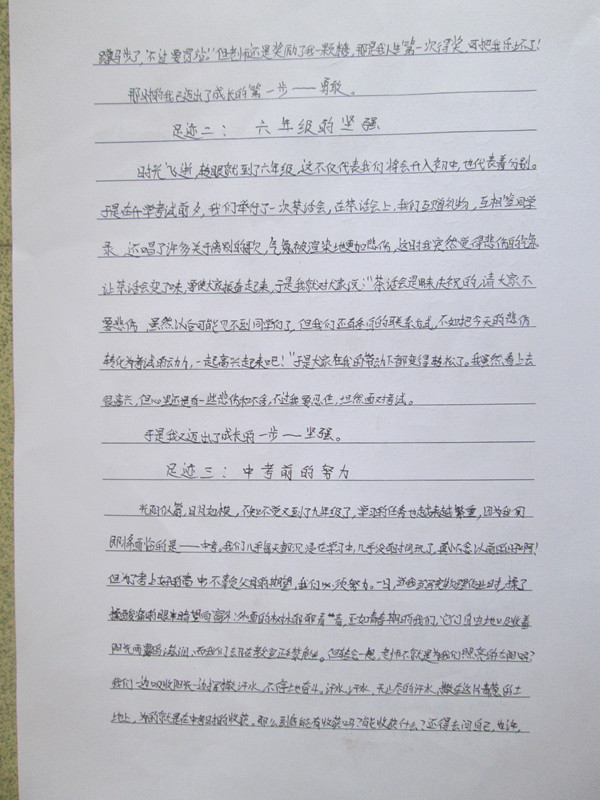 蹲马步了，不过要罚站。”但老师还是奖励了我一颗糖，那是我人生第一次得奖，可把我乐坏了！
那时的我已迈出了成长的第一步——勇敢。
足迹二：六年级的坚强
时光飞逝，转眼就到了六年级，这不仅代表我们将会升入初中，也代表着分别。
于是在升学考试前夕，我们举行了一次茶话会，在茶话会上，我们互赠礼物，互相签同学
录，还唱了许多关于离别的歌，气氛被渲染地更加悲伤，这时我突然觉得悲伤的气氛
让茶话会变了味，要使大家振奋起来，于是我就对大家说：“茶话会是用来庆祝的，请大家不
要悲伤，虽然以后可能见不到同学们了，但我们还有你的联系方式，不如把今天的悲伤
转化为考试的动力，一起高兴起来吧！”于是大家在我的带动下都变得轻松了。我虽然看上去
很高兴，但心里还是有一些悲伤和不舍，不过我要忍住，坦然面对考试。
于是我又迈出了成长的一步——坚强。
足迹三：中考前的努力
光阴似箭，日月如梭，不知不觉又到了九年级了，学习的任务也越来越繁重，因为我们
即将面临的是——中考。我们几乎每天都沉浸在学习中，几乎没有时间玩了，真怀念以前的日子啊！
但为了考上好的高中，不辜负父母的期望，我们必须努力。一日，我写完数理化作业时，揉了
揉酸痛的眼睛望向窗外：外面的树木郁郁青青，正如青春期的我们，它们自由地吸收着
阳光雨露的滋润，而我们却在教室正襟危坐。但转念一想，老师不就是为我们照亮的太阳吗？
我们一边吸收阳光一边挥撒汗水，不停地奋斗。汗水，汗水，无止尽的汗水，撒在这片青葱的土
地上，为的就是在中考时的收获。那么到底能否有收获吗？能收获什么？还得去问自己，生活，